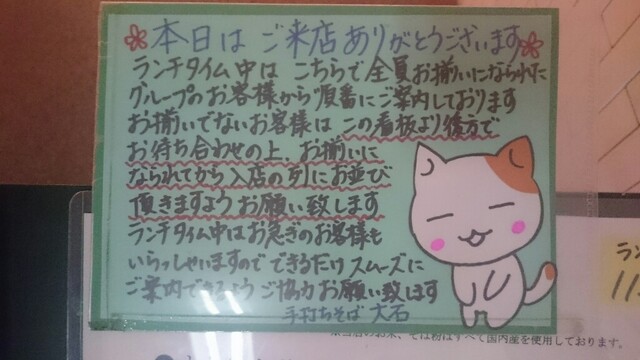 本日はご来店ありがとうございます
ランチタイム中は こちらで全員お揃いになられた
グループのお客様から順番にご案内しております
お揃いでないお客様は この看板より後方で
お待ち合わせの上、お揃いに
なられてから入店の列にお並び
頂きますようお願い致します
ランチタイム中はお急ぎのお客様も
いらっしゃいますので できるだけスムーズに
ご案内できるよう ご協力お願い致します
手打ちそば 大石
ラン
11
そば粉はすべて国内産を使用しております。